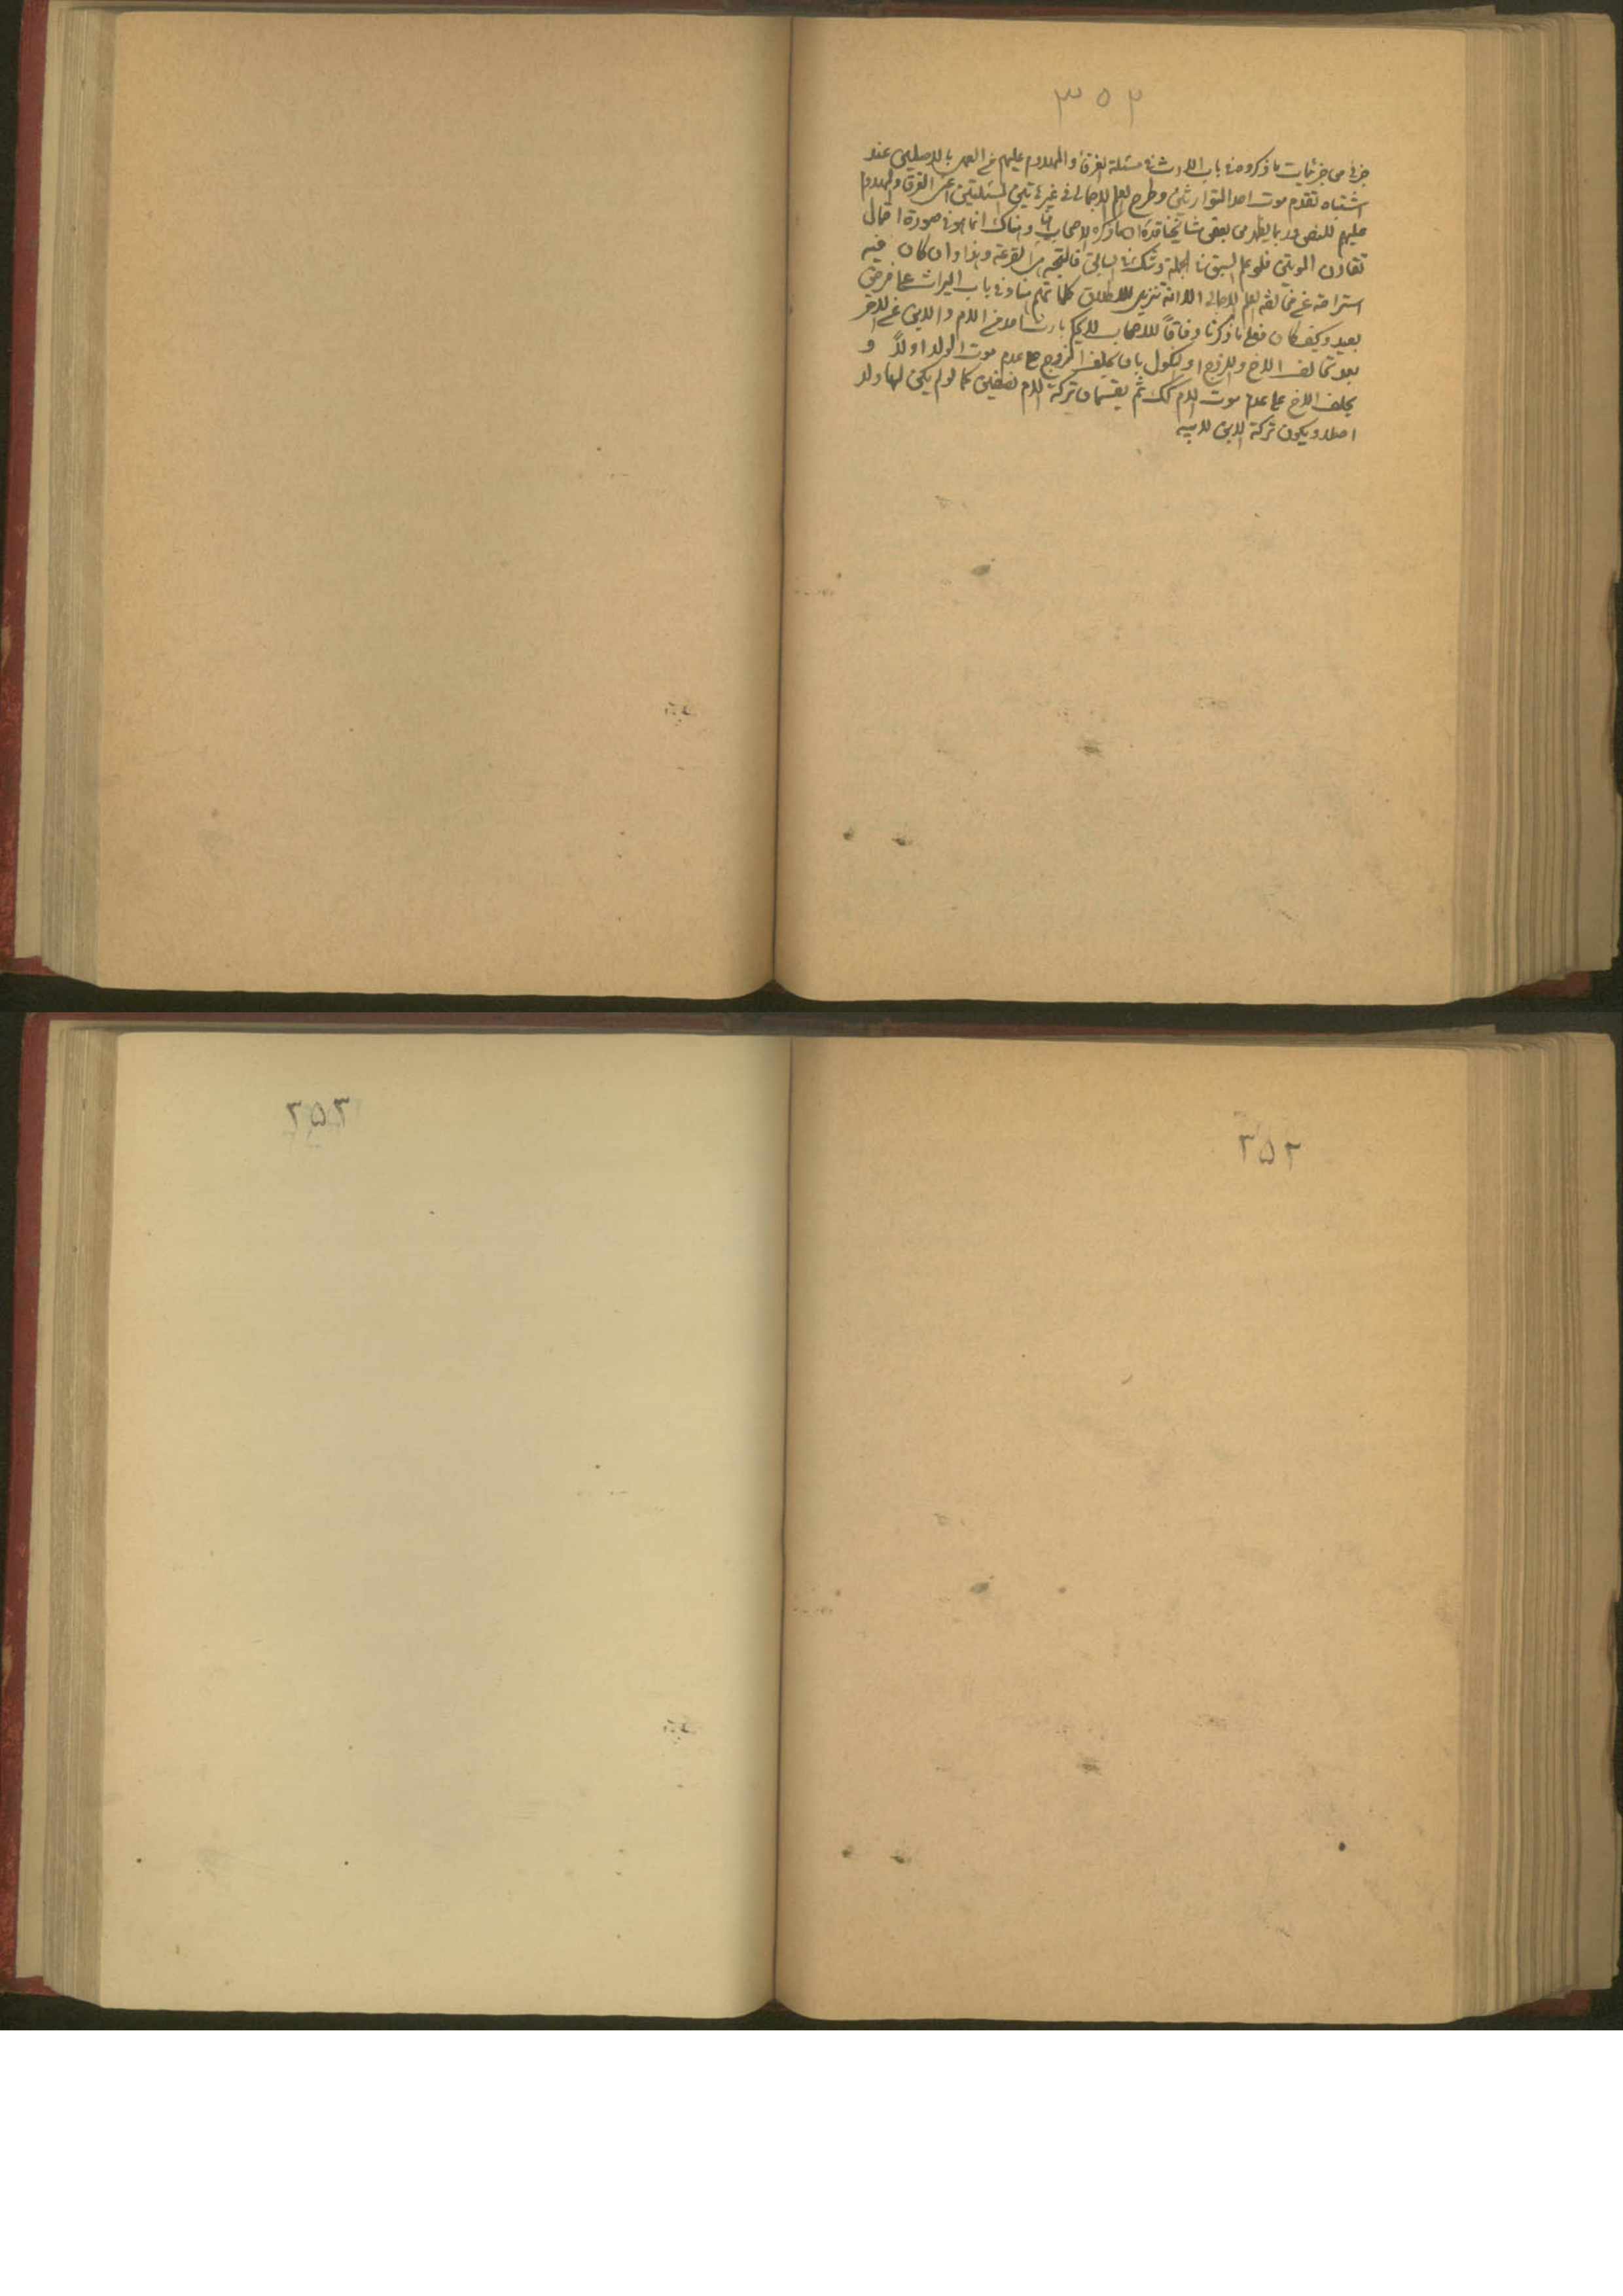 ٣٥٢
جزئى من جزئيات ما ذكروه فى باب الارث فى مسئلة الغرقى والمهدوم عليهم من العمل بالاصلين عند
اشتباه تقدم موت احد المتوارثين وطرح العلم الاجمالى فى غير تين المسئلتين اعنى الغرقى والمهدوم
عليهم للنص وربما يظهر من بعض مشايخنا قده ان ما ذكره الاصحاب هنا وهناك انما هو فى صورة احتمال
تقارن الموتين فلو علم السبق فى الجملة وشك فى السابق فالمتجه القرعة وهذا وان كان فيه
استراحة عن مخالفة العلم الاجمالى الا انه تنزيل لاطلاق كلماتهم هنا وفى باب الميراث على فرض
بعيد وكيف كان فعلى ما ذكرنا وفاقاً للاصحاب لا يحكم بارث احد من الام والابن عن الآخر
بعد تحالف الاخ والزوج او النكول بان يحلف الزوج على عدم موت الولد اولاً و
يحلف الاخ على عدم موت الام كك ثم يقتسمان تركة الام نصفين كما لو لم يكن لها ولد
اصلا ويكون تركة الابن لابيه
٢٥٢
٢٥٣